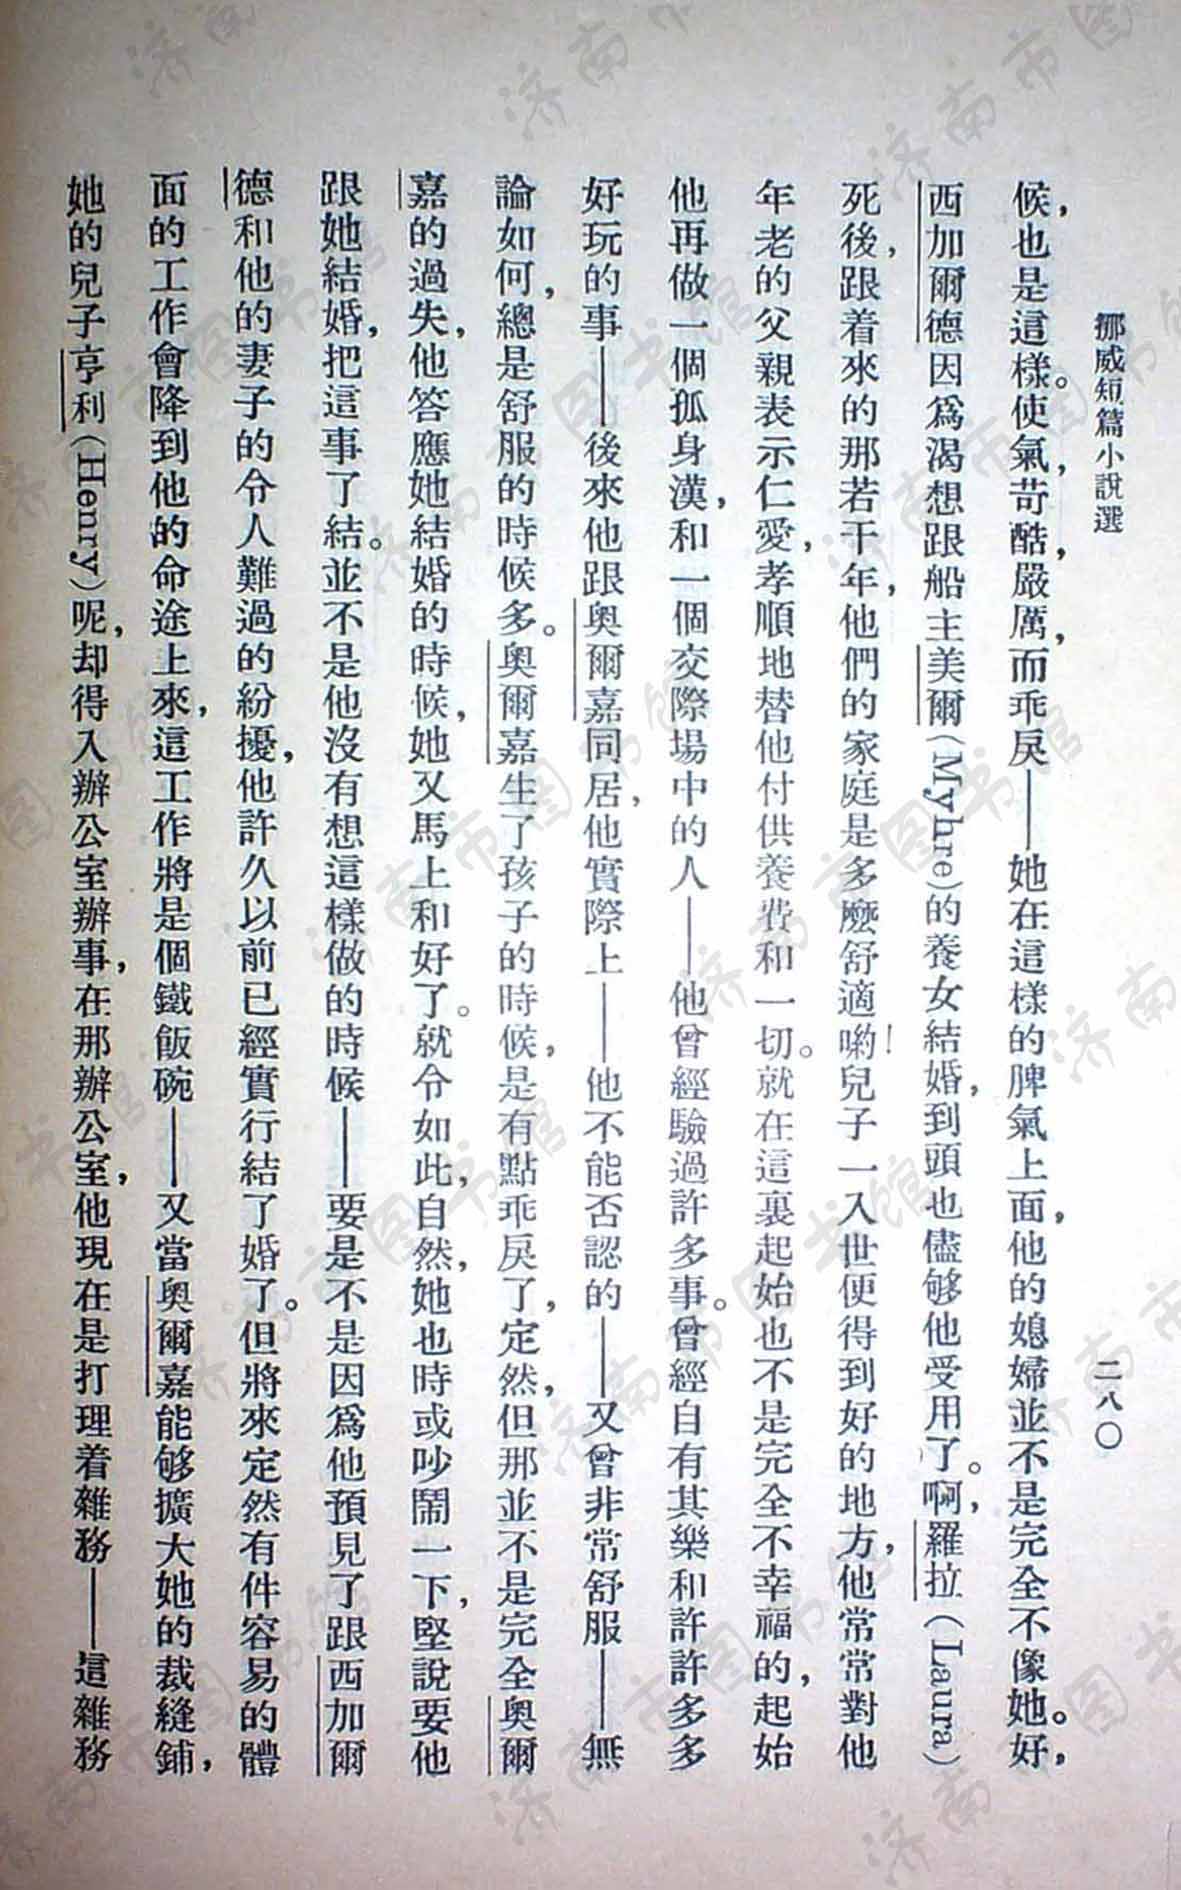 挪威短篇小說選
二八〇
候，也是這樣。使氣，苛酷，嚴厲，而乖戾——她在這樣的脾氣上面，他的媳婦並不是完全不像她。好，
西加爾德因爲渴想跟船主美爾（Myhre）的養女結婚，到頭也儘够他受用了。啊，羅拉（Laura）
死後，跟着來的那若干年，他們的家庭是多麽舒適喲！兒子一入世便得到好的地方，他常常對他
年老的父親表示仁愛，孝順地替他付供養費和一切。就在這裏起始也不是完全不幸福的，起始
他再做一個孤身漢，和一個交際場中的人——他曾經驗過許多事。曾經自有其樂和許許多多
好玩的事——後來他跟奧爾嘉同居，他實際上——他不能否認的——又曾非常舒服——無
論如何，總是舒服的時候多。奧爾嘉生了孩子的時候，是有點乖戾了，定然，但那並不是完全奧爾
嘉的過失，他答應她結婚的時候，她又馬上和好了。就令如此，自然，她也時或吵鬧一下，堅說要他
跟她結婚，把這事了結。並不是他沒有想這樣做的時候——要是不是因爲他預見了跟西加爾
德和他的妻子的令人難過的紛擾，他許久以前已經實行結了婚了。但將來定然有件容易的體
面的工作會降到他的命途上來，這工作將是個鐵飯碗——又當奧爾嘉能够擴大她的裁縫鋪，
她的兒子亨利（Henry）呢，却得入辦公室辦事，在那辦公室，他現在是打理着雜務——這雜務
济南市图书馆